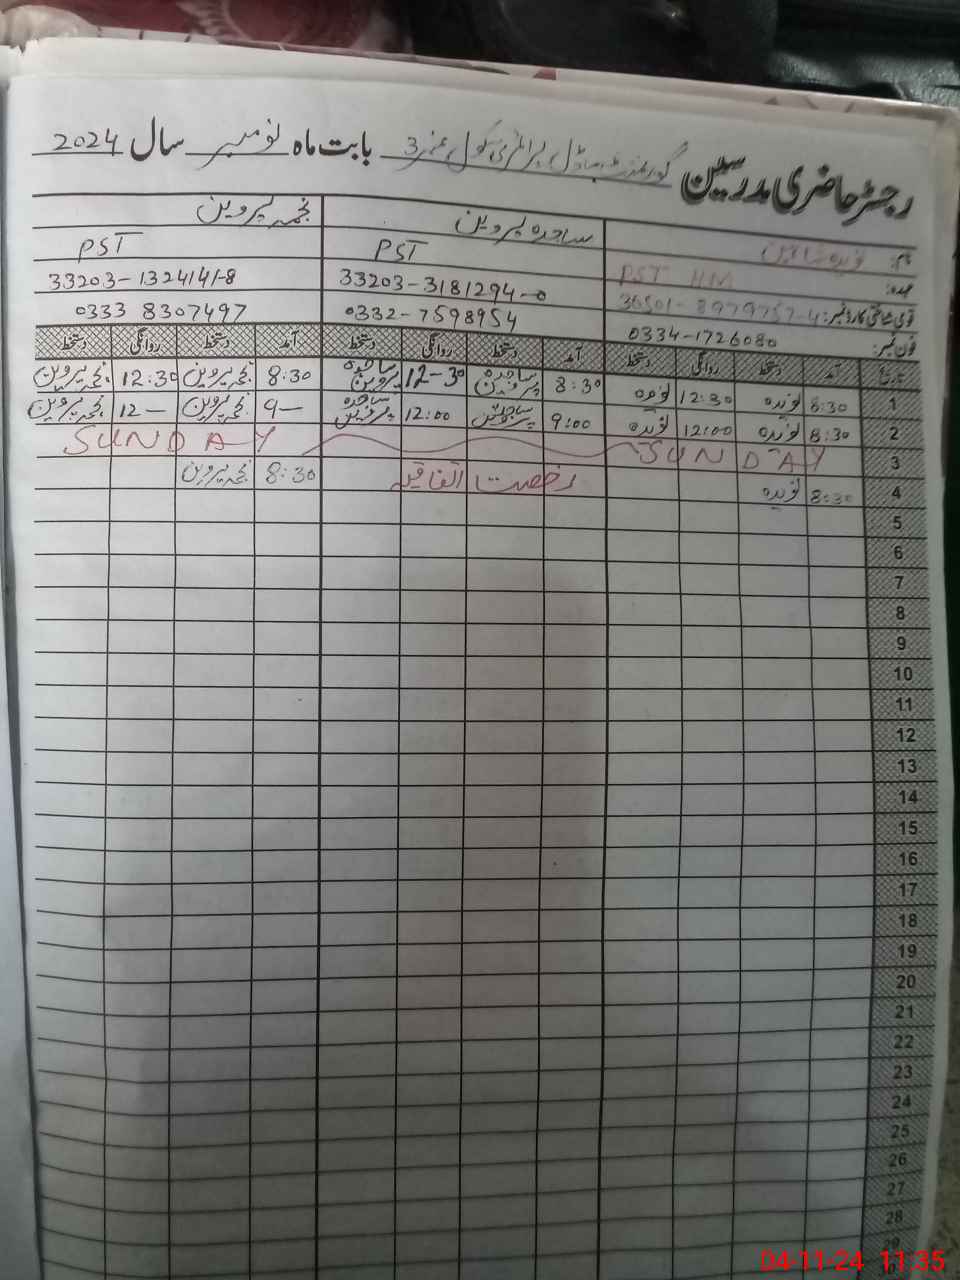 رجسٹر حاضری مدرسین گورنمنٹ ماڈل پرائمری سکول نمبر 3 بابت ماہ نومبر سال 2024
نام: ساجدہ پروین نجمہ پروین
عہدہ: PST HM PST PST
قومی شناختی کارڈ نمبر: 36501-8979757-4 33203-3181294-0 33203-1324141-8
فون نمبر: 0334-1726080 0332-7598954 0333 8307497
تاریخ آمد دستخط روانگی دستخط آمد دستخط روانگی دستخط آمد دستخط روانگی دستخط
1 8:30 نویدہ 12:30 نویدہ 8:30 ساجدہ پروین 12-30 ساجدہ پروین 8:30 نجمہ پروین 12:30 نجمہ پروین
2 8:30 نویدہ 12:00 نویدہ 9:00 ساجدہ پروین 12:00 ساجدہ پروین 9- نجمہ پروین 12- نجمہ پروین
3 SUNDAY SUNDAY
4 8:30 نویدہ رخصت اتفاقیہ 8:30 نجمہ پروین
5
6
7
8
9
10
11
12
13
14
15
16
17
18
19
20
21
22
23
24
25
26
27
28
29
04-11-24 11:35